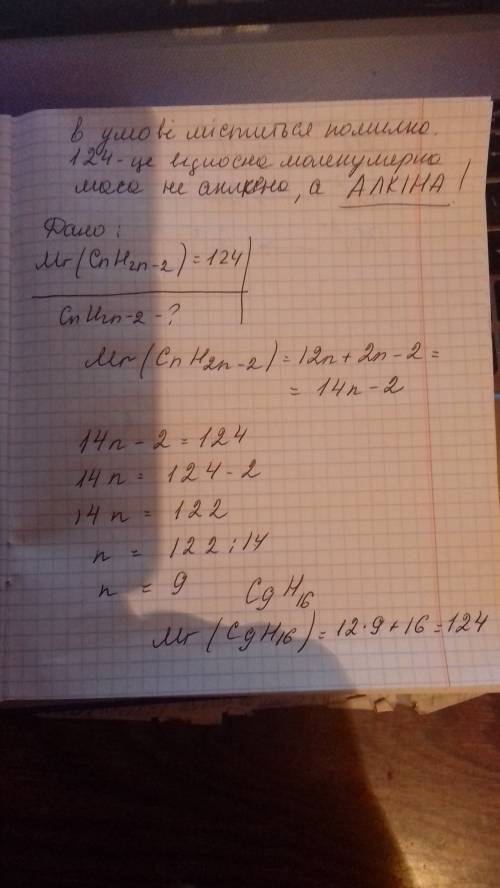 В умові міститься помилка.
124-це відносна молекулярна
маса не алкена, а АЛКІНА!
Дано:
Mr(CnH2n-2)=124
CnH2n-2-?
Mr(CnH2n-2)=12n+2n-2=
=14n-2
14n-2=124
14n=124-2
14n=122
n=122:14
n=9 C9H16
Mr(C9H16)=12·9+16=124